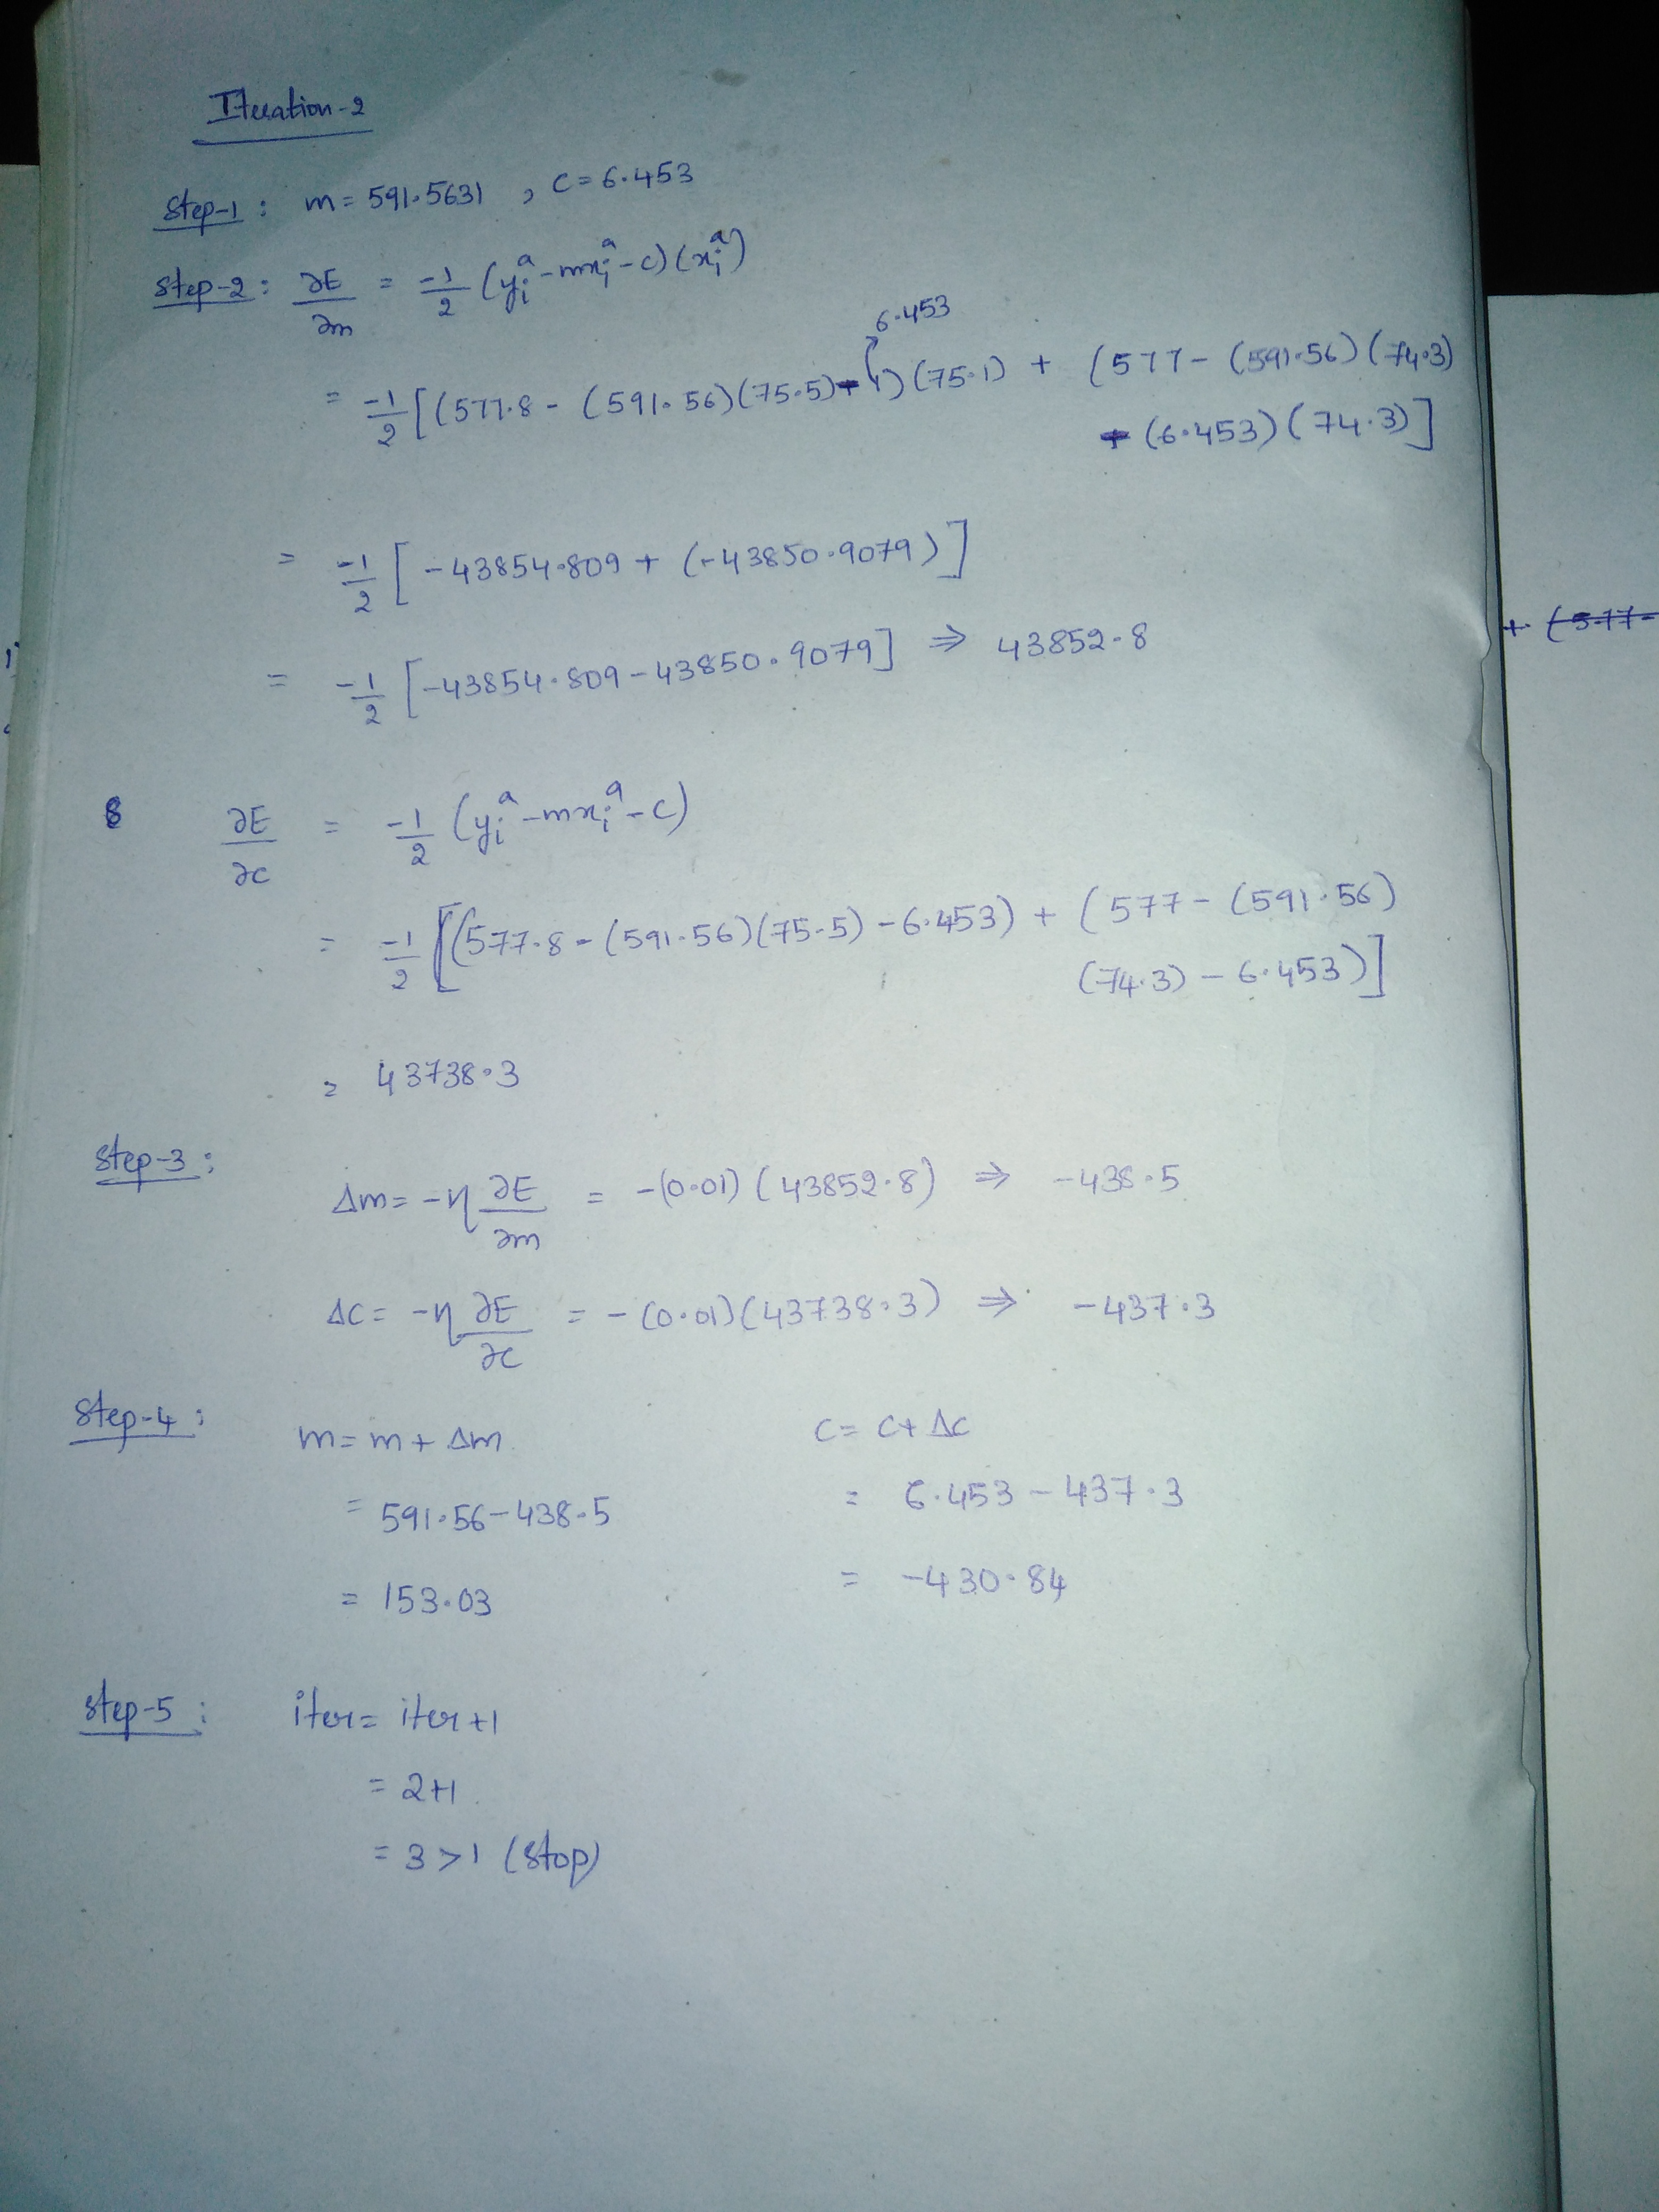 Iteration-2
Step-1 : m = 591.5631 , c = 6.453
Step-2 : ∂E/∂m = -1/2 (yᵢᵃ - mxᵢᵃ - c)(xᵢᵃ)
6.453
= -1/2 [(577.8 - (591.56)(75.5) - 1)(75.1) + (577 - (591.56)(74.3)
- (6.453)(74.3)]
= -1/2 [-43854.809 + (-43850.9079)]
= -1/2 [-43854.809 - 43850.9079] ⇒ 43852.8
+ (577-
∂E/∂c = -1/2 (yᵢᵃ - mxᵢᵃ - c)
= -1/2 [(577.8 - (591.56)(75.5) - 6.453) + (577 - (591.56)
(74.3) - 6.453)]
= 43738.3
Step-3 :
Δm = -η ∂E/∂m = -(0.01)(43852.8) ⇒ -438.5
Δc = -η ∂E/∂c = -(0.01)(43738.3) ⇒ -437.3
Step-4 :
m = m + Δm c = c + Δc
= 591.56 - 438.5 = 6.453 - 437.3
= 153.03 = -430.84
Step-5 : iter = iter +1
= 2+1
= 3 > 1 (Stop)